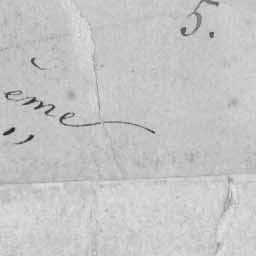 5.
eme